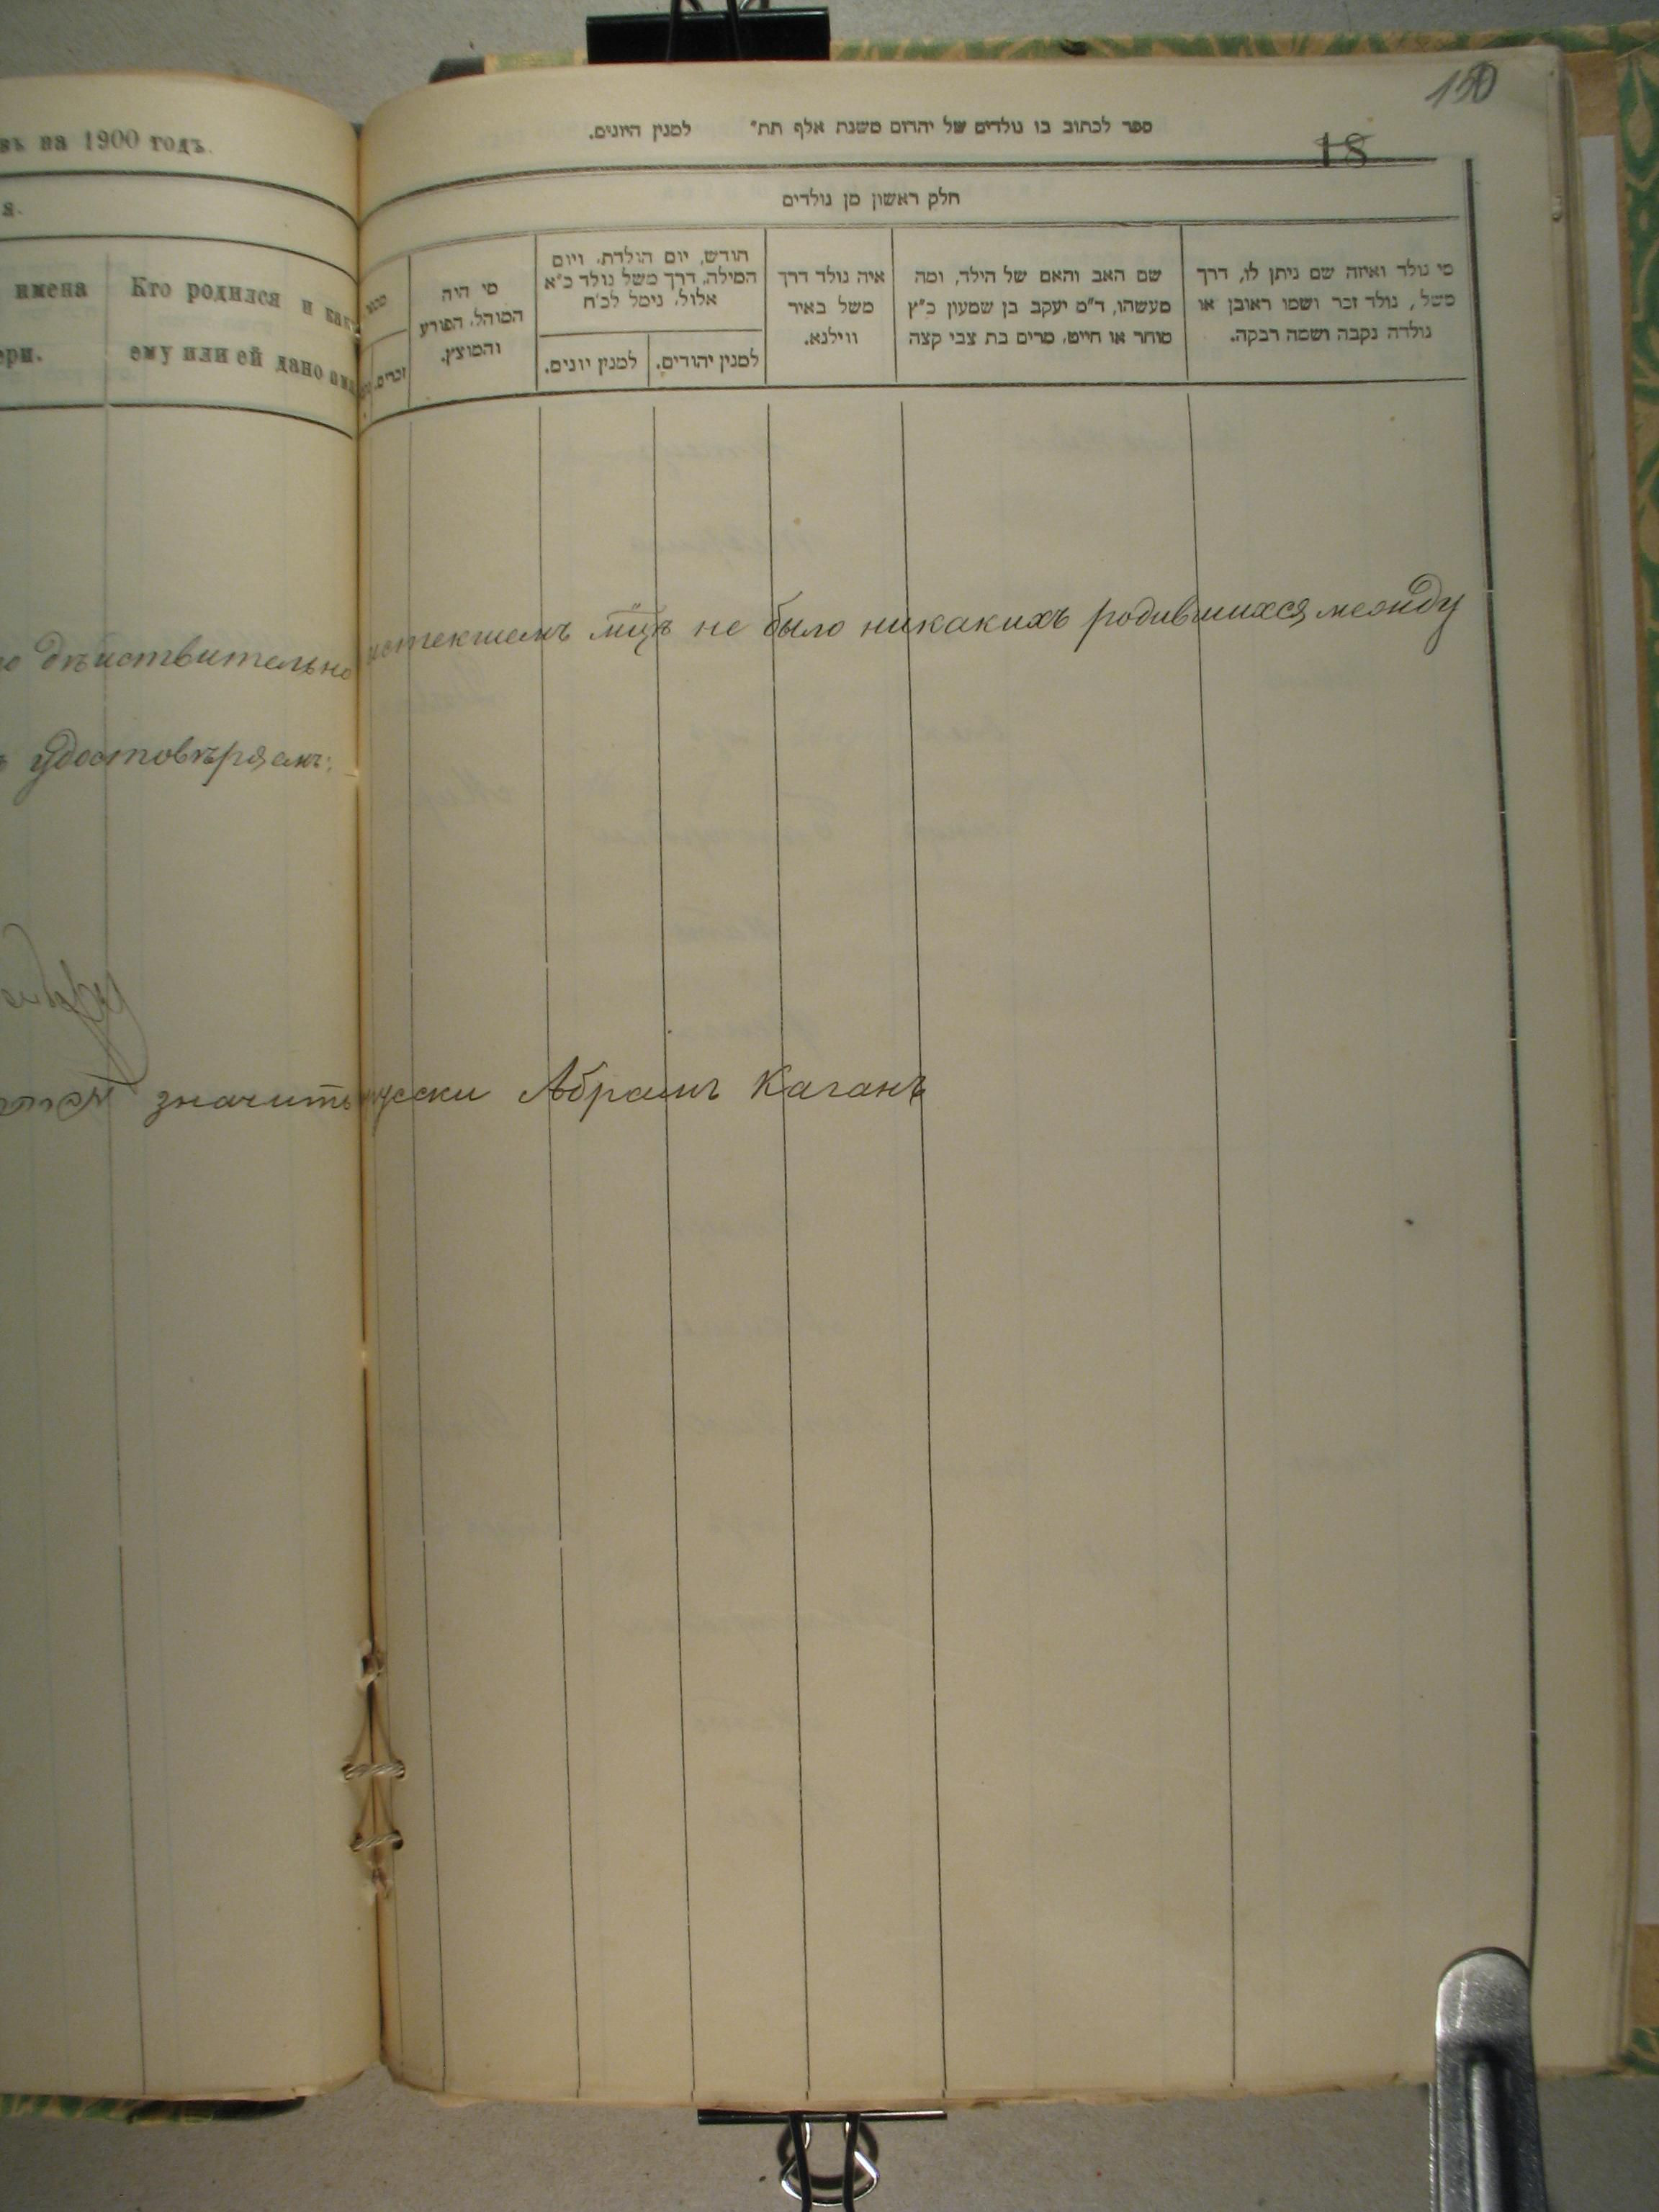 въ на 1900 годъ.
я.
имена
ери.
Кто родился и какъ
ему или ей дано имя
о дѣйствительно
ъ удостовѣряемъ:
значитъ
150
18
ספר לכתוב בו נולדים של יהודים משנת אלף תת״ למנין היונים.
חלק ראשון מן נולדים
מי נולד ואיזה שם ניתן לו, דרך
משל, נולד זכר ושמו ראובן או
נולדה נקבה ושמה רבקה.
שם האב והאם של הילד, ומה
מעשהו, ד״מ יעקב בן שמעון כ״ץ
סוחר או חייט, מרים בת צבי קצה
איה נולד דרך
משל באיר
ווילנא.
חודש, יום הולדת, ויום
המילה, דרך משל נולד כ״א
אלול, נימל לכ״ח
למנין יהודים.
למנין יונים.
מי היה
המוהל, הפורע
והמוצץ.
זכרים.
истекшемъ мцѣ не было никакихъ родившихся между
русски Абрамъ Каганъ